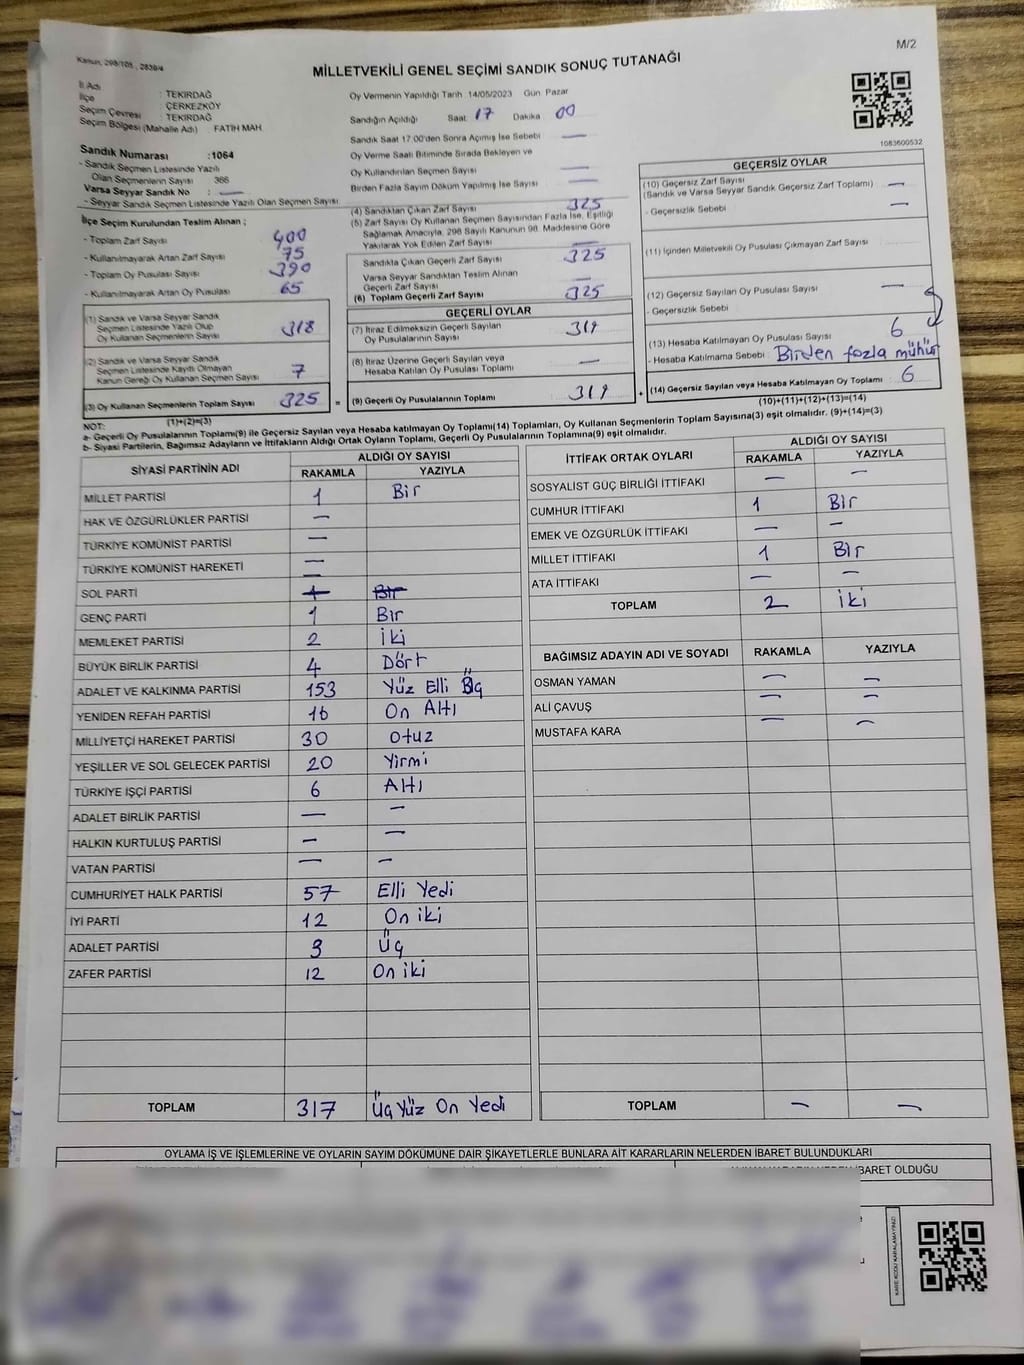 M/2
Kanun, 298/105 , 2839/4
MİLLETVEKİLİ GENEL SEÇİMİ SANDIK SONUÇ TUTANAĞI
İl Adı : TEKİRDAĞ
İlçe : ÇERKEZKÖY
Seçim Çevresi : TEKİRDAĞ
Seçim Bölgesi (Mahalle Adı) FATİH MAH.
Sandık Numarası :1064
- Sandık Seçmen Listesinde Yazılı
Olan Seçmenlerin Sayısı 366
Varsa Seyyar Sandık No : —
- Seyyar Sandık Seçmen Listesinde Yazılı Olan Seçmen Sayısı
İlçe Seçim Kurulundan Teslim Alınan ;
- Toplam Zarf Sayısı 400
- Kullanılmayarak Artan Zarf Sayısı 75
- Toplam Oy Pusulası Sayısı 390
- Kullanılmayarak Artan Oy Pusulası 65
(1) Sandık ve Varsa Seyyar Sandık
Seçmen Listesinde Yazılı Olup
Oy Kullanan Seçmenlerin Sayısı 318
(2) Sandık ve Varsa Seyyar Sandık
Seçmen Listesinde Kayıtlı Olmayan
Kanun Gereği Oy Kullanan Seçmen Sayısı 7
(3) Oy Kullanan Seçmenlerin Toplam Sayısı 325 =
(1)+(2)=(3)
Oy Vermenin Yapıldığı Tarih :14/05/2023 Gün Pazar
Sandığın Açıldığı Saat 17 Dakika 00
Sandık Saat 17.00'den Sonra Açımış İse Sebebi —
Oy Verme Saati Bitiminde Sırada Bekleyen ve
Oy Kullandırılan Seçmen Sayısı —
Birden Fazla Sayım Döküm Yapılmış İse Sayısı —
(4) Sandıktan Çıkan Zarf Sayısı 325
(5) Zarf Sayısı Oy Kullanan Seçmen Sayısından Fazla İse, Eşitliği
Sağlamak Amacıyla, 298 Sayılı Kanunun 98. Maddesine Göre
Yakılarak Yok Edilen Zarf Sayısı —
Sandıkta Çıkan Geçerli Zarf Sayısı 325
Varsa Seyyar Sandıktan Teslim Alınan
Geçerli Zarf Sayısı —
(6) Toplam Geçerli Zarf Sayısı 325
GEÇERLİ OYLAR
(7) İtiraz Edilmeksizin Geçerli Sayılan
Oy Pusulalarının Sayısı 319
(8) İtiraz Üzerine Geçerli Sayılan veya
Hesaba Katılan Oy Pusulası Toplamı —
(9) Geçerli Oy Pusulalarının Toplamı 319 +
1083600532
GEÇERSİZ OYLAR
(10) Geçersiz Zarf Sayısı
(Sandık ve Varsa Seyyar Sandık Geçersiz Zarf Toplamı) —
- Geçersizlik Sebebi —
(11) İçinden Milletvekili Oy Pusulası Çıkmayan Zarf Sayısı
(12) Geçersiz Sayılan Oy Pusulası Sayısı —
- Geçersizlik Sebebi
(13) Hesaba Katılmayan Oy Pusulası Sayısı 6
- Hesaba Katılmama Sebebi Birden fazla mühür
(14) Geçersiz Sayılan veya Hesaba Katılmayan Oy Toplamı : 6
(10)+(11)+(12)+(13)=(14)
NOT:
a- Geçerli Oy Pusulasının Toplamı(9) ile Geçersiz Sayılan veya Hesaba katılmayan Oy Toplamı(14) Toplamları, Oy Kullanan Seçmenlerin Toplam Sayısına(3) eşit olmalıdır. (9)+(14)=(3)
b- Siyasi Partilerin, Bağımsız Adayların ve İttifakların Aldığı Ortak Oyların Toplamı, Geçerli Oy Pusulalarının Toplamına(9) eşit olmalıdır.
SİYASİ PARTİNİN ADI ALDIĞI OY SAYISI
RAKAMLA YAZIYLA
MİLLET PARTİSİ 1 Bir
HAK VE ÖZGÜRLÜKLER PARTİSİ —
TÜRKİYE KOMÜNİST PARTİSİ —
TÜRKİYE KOMÜNİST HAREKETİ —
SOL PARTİ — 1 Bir
GENÇ PARTİ 1 Bir
MEMLEKET PARTİSİ 2 İki
BÜYÜK BİRLİK PARTİSİ 4 Dört
ADALET VE KALKINMA PARTİSİ 153 Yüz Elli Üç
YENİDEN REFAH PARTİSİ 16 On Altı
MİLLİYETÇİ HAREKET PARTİSİ 30 Otuz
YEŞİLLER VE SOL GELECEK PARTİSİ 20 Yirmi
TÜRKİYE İŞÇİ PARTİSİ 6 Altı
ADALET BİRLİK PARTİSİ — —
HALKIN KURTULUŞ PARTİSİ — —
VATAN PARTİSİ — —
CUMHURİYET HALK PARTİSİ 57 Elli Yedi
İYİ PARTİ 12 On iki
ADALET PARTİSİ 3 Üç
ZAFER PARTİSİ 12 On iki
TOPLAM 317 Üç Yüz On Yedi
İTTİFAK ORTAK OYLARI ALDIĞI OY SAYISI
RAKAMLA YAZIYLA
SOSYALİST GÜÇ BİRLİĞİ İTTİFAKI — —
CUMHUR İTTİFAKI 1 Bir
EMEK VE ÖZGÜRLÜK İTTİFAKI — —
MİLLET İTTİFAKI 1 Bir
ATA İTTİFAKI — —
TOPLAM 2 İki
BAĞIMSIZ ADAYIN ADI VE SOYADI RAKAMLA YAZIYLA
OSMAN YAMAN — —
ALİ ÇAVUŞ — —
MUSTAFA KARA — —
TOPLAM — —
OYLAMA İŞ VE İŞLEMLERİNE VE OYLARIN SAYIM DÖKÜMÜNE DAİR ŞİKAYETLERLE BUNLARA AİT KARARLARIN NELERDEN İBARET BULUNDUKLARI
İBARET OLDUĞU
KARE KODU KARALAMAYINIZ!